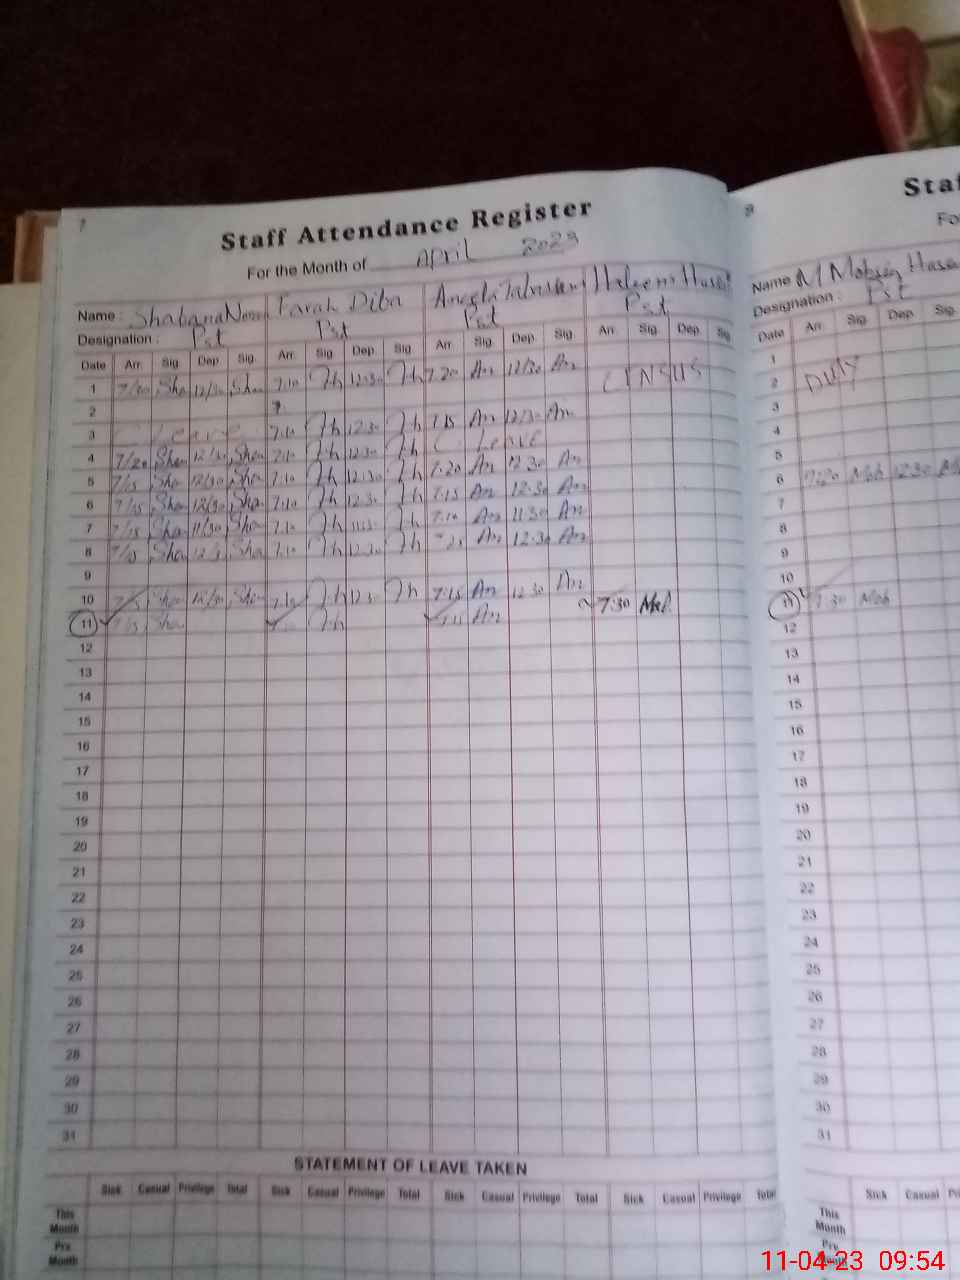 7
Staff Attendance Register
For the Month of April 2023
Name : Shabana Farah Diba Haleem
Designation : Pst Pst Pst Pst
Date Arr. Sig. Dep. Sig. Arr. Sig. Dep. Sig. Arr. Sig. Dep. Sig. Arr. Sig. Dep. Sig.
1 7/20 Sha 12/30 Sha 7.10 Fh 12:30 Fh 7.20 An 12/30 An CENSUS
2
3 C Leave 7.10 Fh 12.30 Fh 7.15 An 12/30 An
4 7/20 Sha 12/30 Sha 7.10 Fh 12.30 Fh C Leave
5 7/15 Sha 12/30 Sha 7.10 Fh 12.30 Fh 7.20 An 12.30 An
6 7/15 Sha 12/30 Sha 7.10 Fh 12.30 Fh 7.15 An 12.30 An
7 7/15 Sha 11/30 Sha 7.10 Fh Fh 7.10 An 11.30 An
8 7/15 Sha Sha 7.10 Fh 12.30 Fh An 12.30 An
9
10 7/15 Sha 12/30 Sha 7.10 Fh 12.30 Fh 7:15 An 12.30 An
11 7/15 Sha Fh An 7:30
12
13
14
15
16
17
18
19
20
21
22
23
24
25
26
27
28
29
30
31
STATEMENT OF LEAVE TAKEN
Sick Casual Privilege Total Sick Casual Privilege Total Sick Casual Privilege Total Sick Casual Privilege Total
This Month
Pre Month
Name M Mohsin
Designation : Pst
Date Arr. Sig. Dep. Sig.
1
2 DUTY
3
4
5
6 7:20 Moh 12:30
7
8
9
10
11 7:30 Moh
12
13
14
15
16
17
18
19
20
21
22
23
24
25
26
27
28
29
30
31
Sick Casual
This Month
Pre Month
11-04-23 09:54